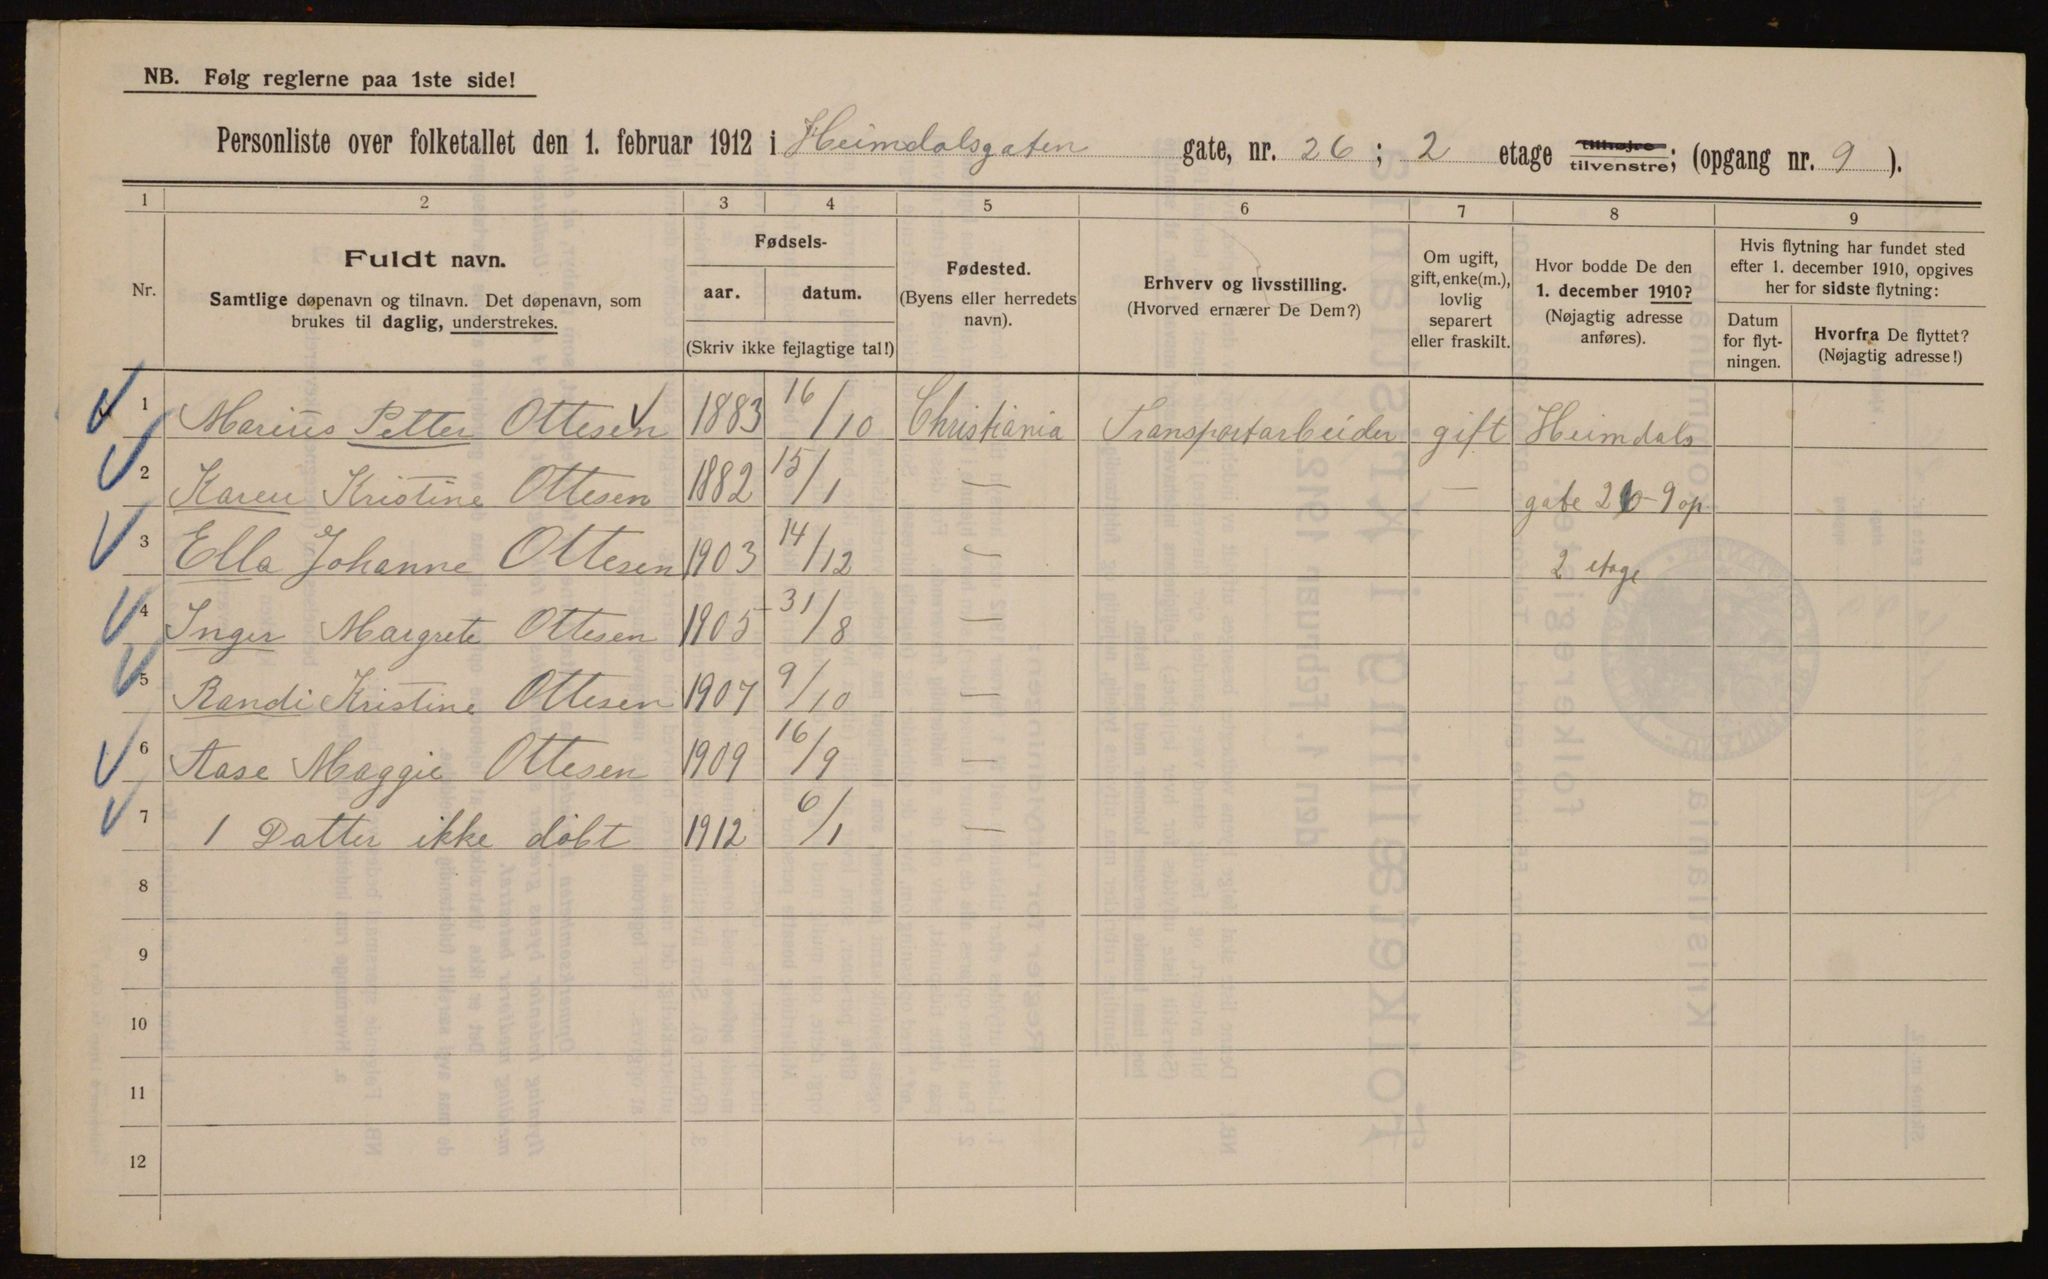 NB. Følg reglerne paa 1ste side!
Personliste over folketallet den 1. februar 1912 i Heimdalsgaten gate, nr. 26 ; 2 etage tilhøjre tilvenstre; (opgang nr. 9 ).
1 2 3 4 5 6 7 8 9
Nr.
Fuldt navn.
Samtlige døpenavn og tilnavn. Det døpenavn, som
brukes til daglig, understrekes.
Fødsels-
aar. datum.
(Skriv ikke fejlagtige tal!)
Fødested.
(Byens eller herredets
navn).
Erhverv og livsstilling.
(Hvorved ernærer De Dem?)
Om ugift,
gift, enke(m.),
lovlig
separert
eller fraskilt.
Hvor bodde De den
1. december 1910?
(Nøjagtig adresse
anføres).
Hvis flytning har fundet sted
efter 1. december 1910, opgives
her for sidste flytning:
Datum
for flyt-
ningen.
Hvorfra De flyttet?
(Nøjagtig adresse!)
1 Marius Petter Ottesen 1883 16/10 Christiania Transportarbeider gift Heimdals
2 Karen Kristine Ottesen 1882 15/1 — — gate 26-9 op
3 Ella Johanne Ottesen 1903 14/12 — 2 etage
4 Inger Margrete Ottesen 1905 31/8 —
5 Randi Kristine Ottesen 1907 9/10 —
6 Aase Maggie Ottesen 1909 16/9 —
7 1 Datter ikke døbt 1912 6/1 —
8
9
10
11
12